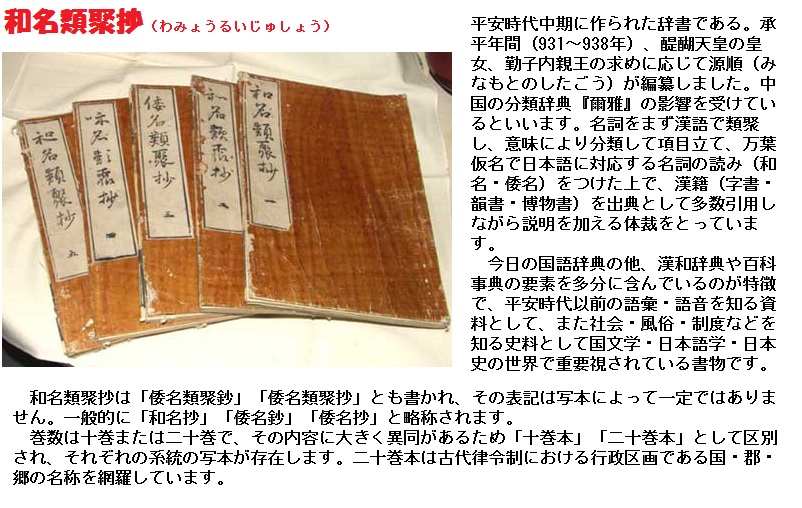 和名類聚抄（わみょうるいじゅしょう）
平安時代中期に作られた辞書である。承
平年間（931～938年）、醍醐天皇の皇
女、勤子内親王の求めに応じて源順（み
なもとのしたごう）が編纂しました。中
国の分類辞典『爾雅』の影響を受けてい
るといいます。名詞をまず漢語で類聚
し、意味により分類して項目立て、万葉
仮名で日本語に対応する名詞の読み（和
名・倭名）をつけた上で、漢籍（字書・
韻書・博物書）を出典として多数引用し
ながら説明を加える体裁をとっていま
す。
　今日の国語辞典の他、漢和辞典や百科
事典の要素を多分に含んでいるのが特徴
で、平安時代以前の語彙・語音を知る資
料として、また社会・風俗・制度などを
知る史料として国文学・日本語学・日本
史の世界で重要視されている書物です。
和名類聚抄 一
和名類聚抄 二
倭名類聚抄 三
和名類聚抄 四
和名類聚抄 五
　和名類聚抄は「倭名類聚鈔」「倭名類聚抄」とも書かれ、その表記は写本によって一定ではありま
せん。一般的に「和名抄」「倭名鈔」「倭名抄」と略称されます。
　巻数は十巻または二十巻で、その内容に大きく異同があるため「十巻本」「二十巻本」として区別
され、それぞれの系統の写本が存在します。二十巻本は古代律令制における行政区画である国・郡・
郷の名称を網羅しています。